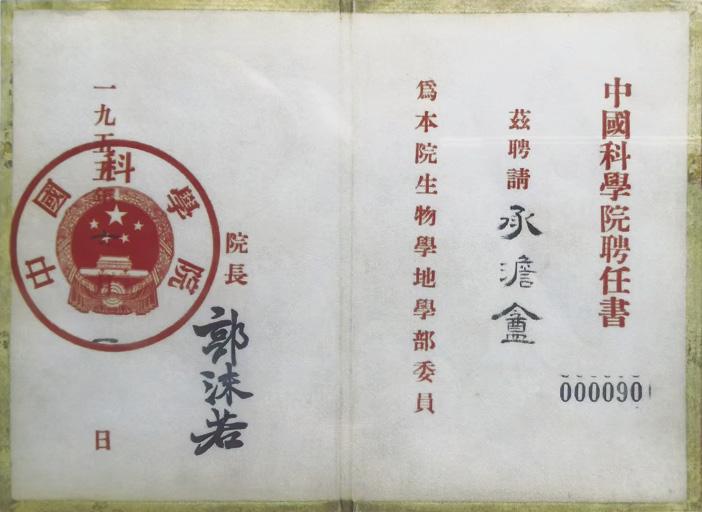 中國科學院聘任書
茲聘請承澹盦
爲本院生物學地學部委員
000090
院長
郭沫若
一九五五年六月一日
中國科學院